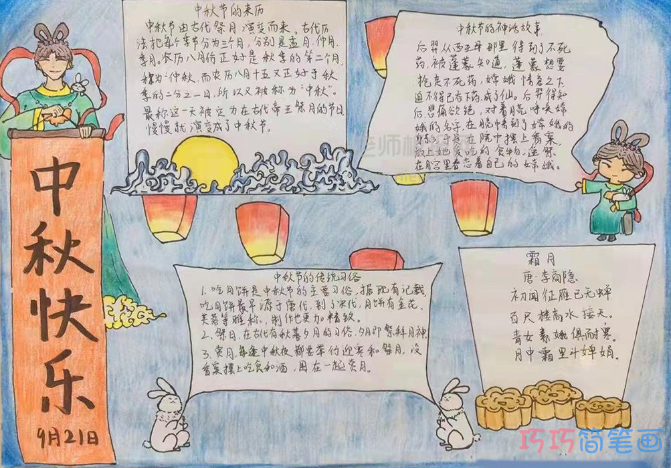 中秋快乐
9月21日
中秋节的来历
中秋节由古代祭月演变而来，古代历
法把每个季节分为三个月，分别是孟月、仲月、
季月，农历八月份正好是秋季的第二个月，
称为“仲秋”，而农历八月十五又正好于秋
季的二分之一日，所以又被称为“中秋”。
最初这一天被定为在古代帝王祭月的节日
慢慢就演变成了中秋节。
中秋节的神话故事
后羿从西王母那里得到了不死
药，被蓬蒙知道，蓬蒙想要
抢走不死药，嫦娥情急之下
逼不得已吞下药，成了仙，后羿得知
后悲痛欲绝，对着月亮呼唤嫦
娥的名字，
院中摆上香案，
放上她爱吃的食物，遥祭
在月宫里眷恋着自己的嫦娥。
中秋节的传统习俗
1.吃月饼是中秋节的主要习俗，据既有记载，
吃月饼最早源于唐代，到了宋代，月饼有金花、
芙蓉等雅称，制作也更加精致。
2.祭月，在古代有秋暮夕月的习俗，夕月即祭拜月神。
3.赏月，每逢中秋夜，都要举行迎寒和祭月，设
香案，摆上吃食和酒，围在一起赏月。
霜月
唐·李商隐
初闻征雁已无蝉
百尺楼高水接天。
青女素娥俱耐寒
月中霜里斗婵娟。
巧巧简笔画